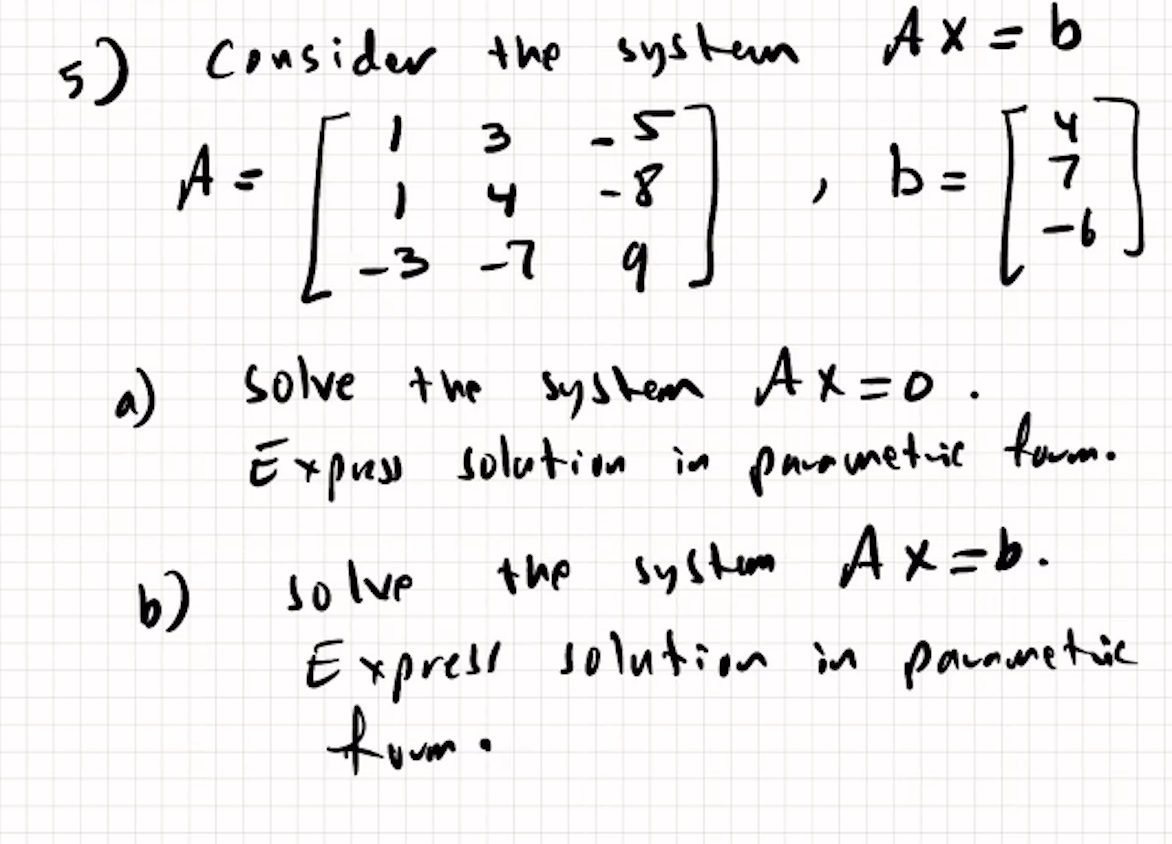 5) Consider the system Ax = b
A = [ 1 3 -5
1 4 -8
-3 -7 9 ] , b = [ 4
7
-6 ]
a) solve the system Ax=0 .
Express solution in parametric form.
b) solve the system Ax=b.
Express solution in parametric
form.